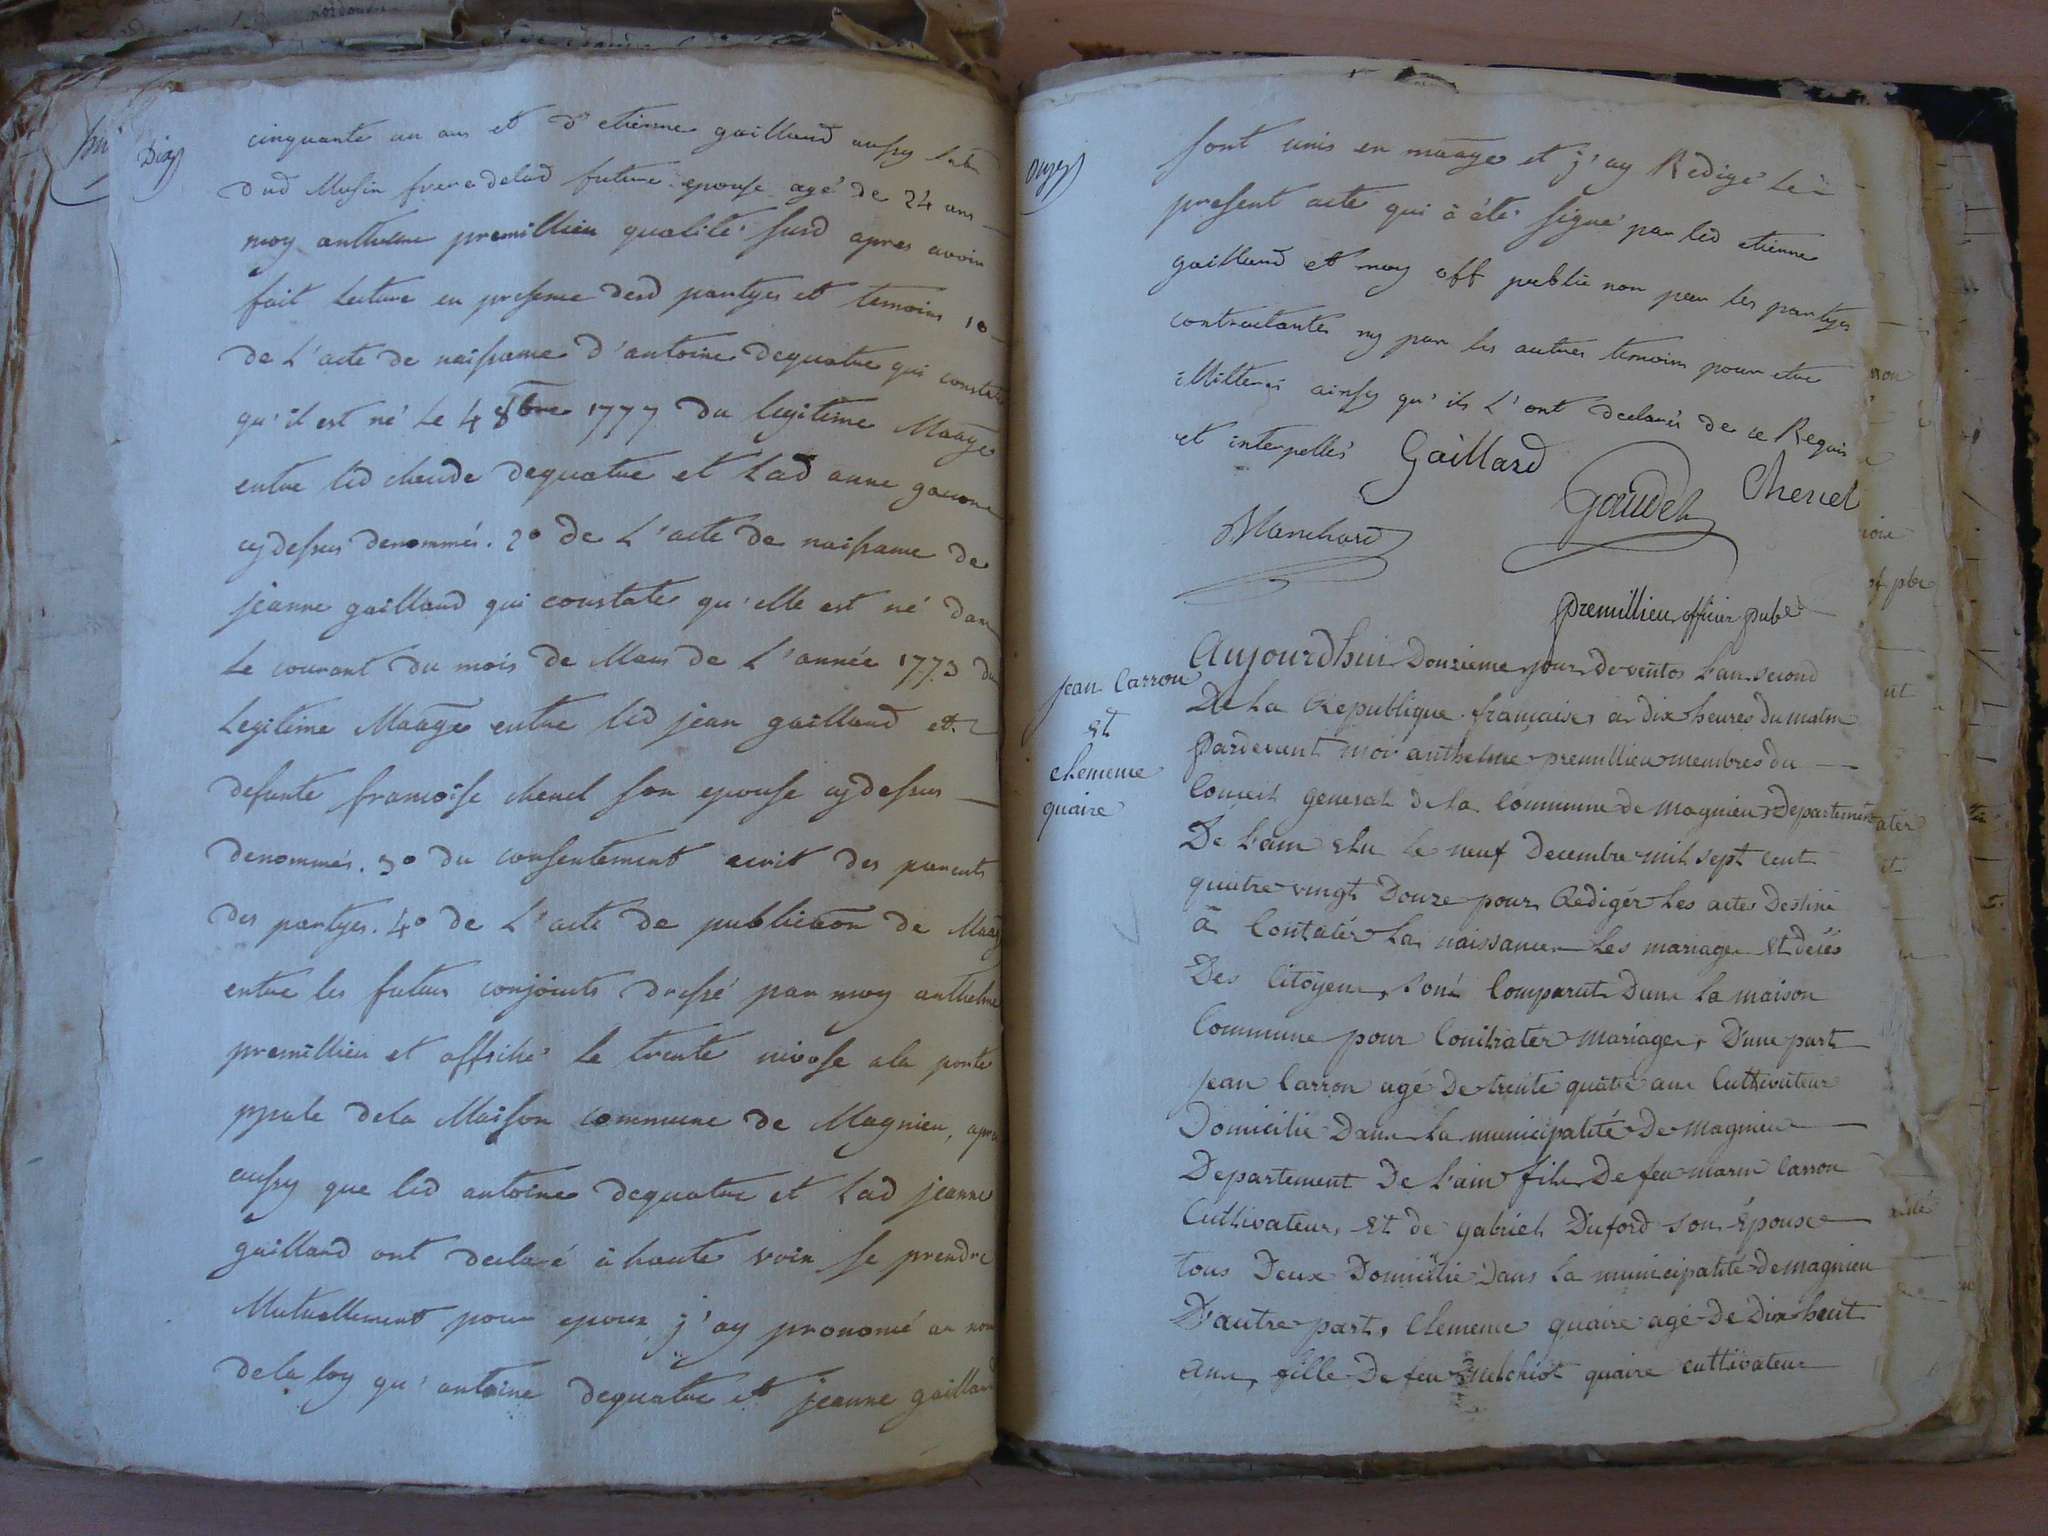 Dix
cinquante un ans et d'etienne gaillard aussy
dud Musin frere delad future epouse agé de 24 ans
moy anthelme premillieu qualité susd apres avoir
fait lecture en presence desd partyes et temoins 1º
de L'acte de naissance d'antoine dequatre qui constate
qu'il est né Le 4 8bre 1777 du legitime Maage
entre led claude dequatre et Lad anne
cydessus denommés. 2º de L'acte de naissance de
jeanne gaillard qui constate qu'elle est né dans
Le courant du mois de Mars de L'année 1773 du
Legitime Maage entre led jean gaillard et
defunte francoise chenel son epouse cydessus
denommés. 3º du consentement ecrit des parents
des partyes. 4º de L'acte de publicaon de Maage
entre les futurs conjoints dressé par moy anthelme
premillieu et affiché Le trente nivose a la porte
ppale dela Maison commune de Magnieu, apres
aussy que led antoine dequatre et Lad jeanne
gaillard ont declaré à haute voix se prendre
Mutuellement pour epoux, j'ay prononcé au nom
de la loy qu'antoine dequatre et jeanne gaillard
onze
sont unis en maage et j'ay Redigé Le
present acte qui à été signé par led etienne
gaillard et moy off public non par les partyes
contractantes ny par les autres temoins pour etre
illiterés ainsy qu'ils L'ont declarés de ce Requis
et interpellés Gaillard
Gaudet Chenel
Blanchard
premillieu officier publ
jean Carron
et
clemence
quaire
Aujourdhui Douzieme jour de ventos L'an second
De La Republique française, a dix heures du matin
pardevant moi anthelme premillieu membres du
Conseil general de la Commune de magnieu Departement
De L'ain elu le neuf Decembre mil sept cent
quatre vingt Douze pour Redigér Les actes Destiné
à Contatér La naissance Les mariage et décés
Des Citoyens, sont Comparut Dans la maison
Commune pour Contratér mariage, D'une part
jean Carron agé De trente quatre ans Cultivateur
Domicilié Dans La municipalité De magnieu
Departement De L'ain fils De feu marin Carron
Cultivateur, et de gabriel Duford son épouse
tous Deux Domicilié Dans La municipalité de magnieu
D'autre part, Clemence quaire agé De Dix huit
ans, fille De feu melchiot quaire cultivateur